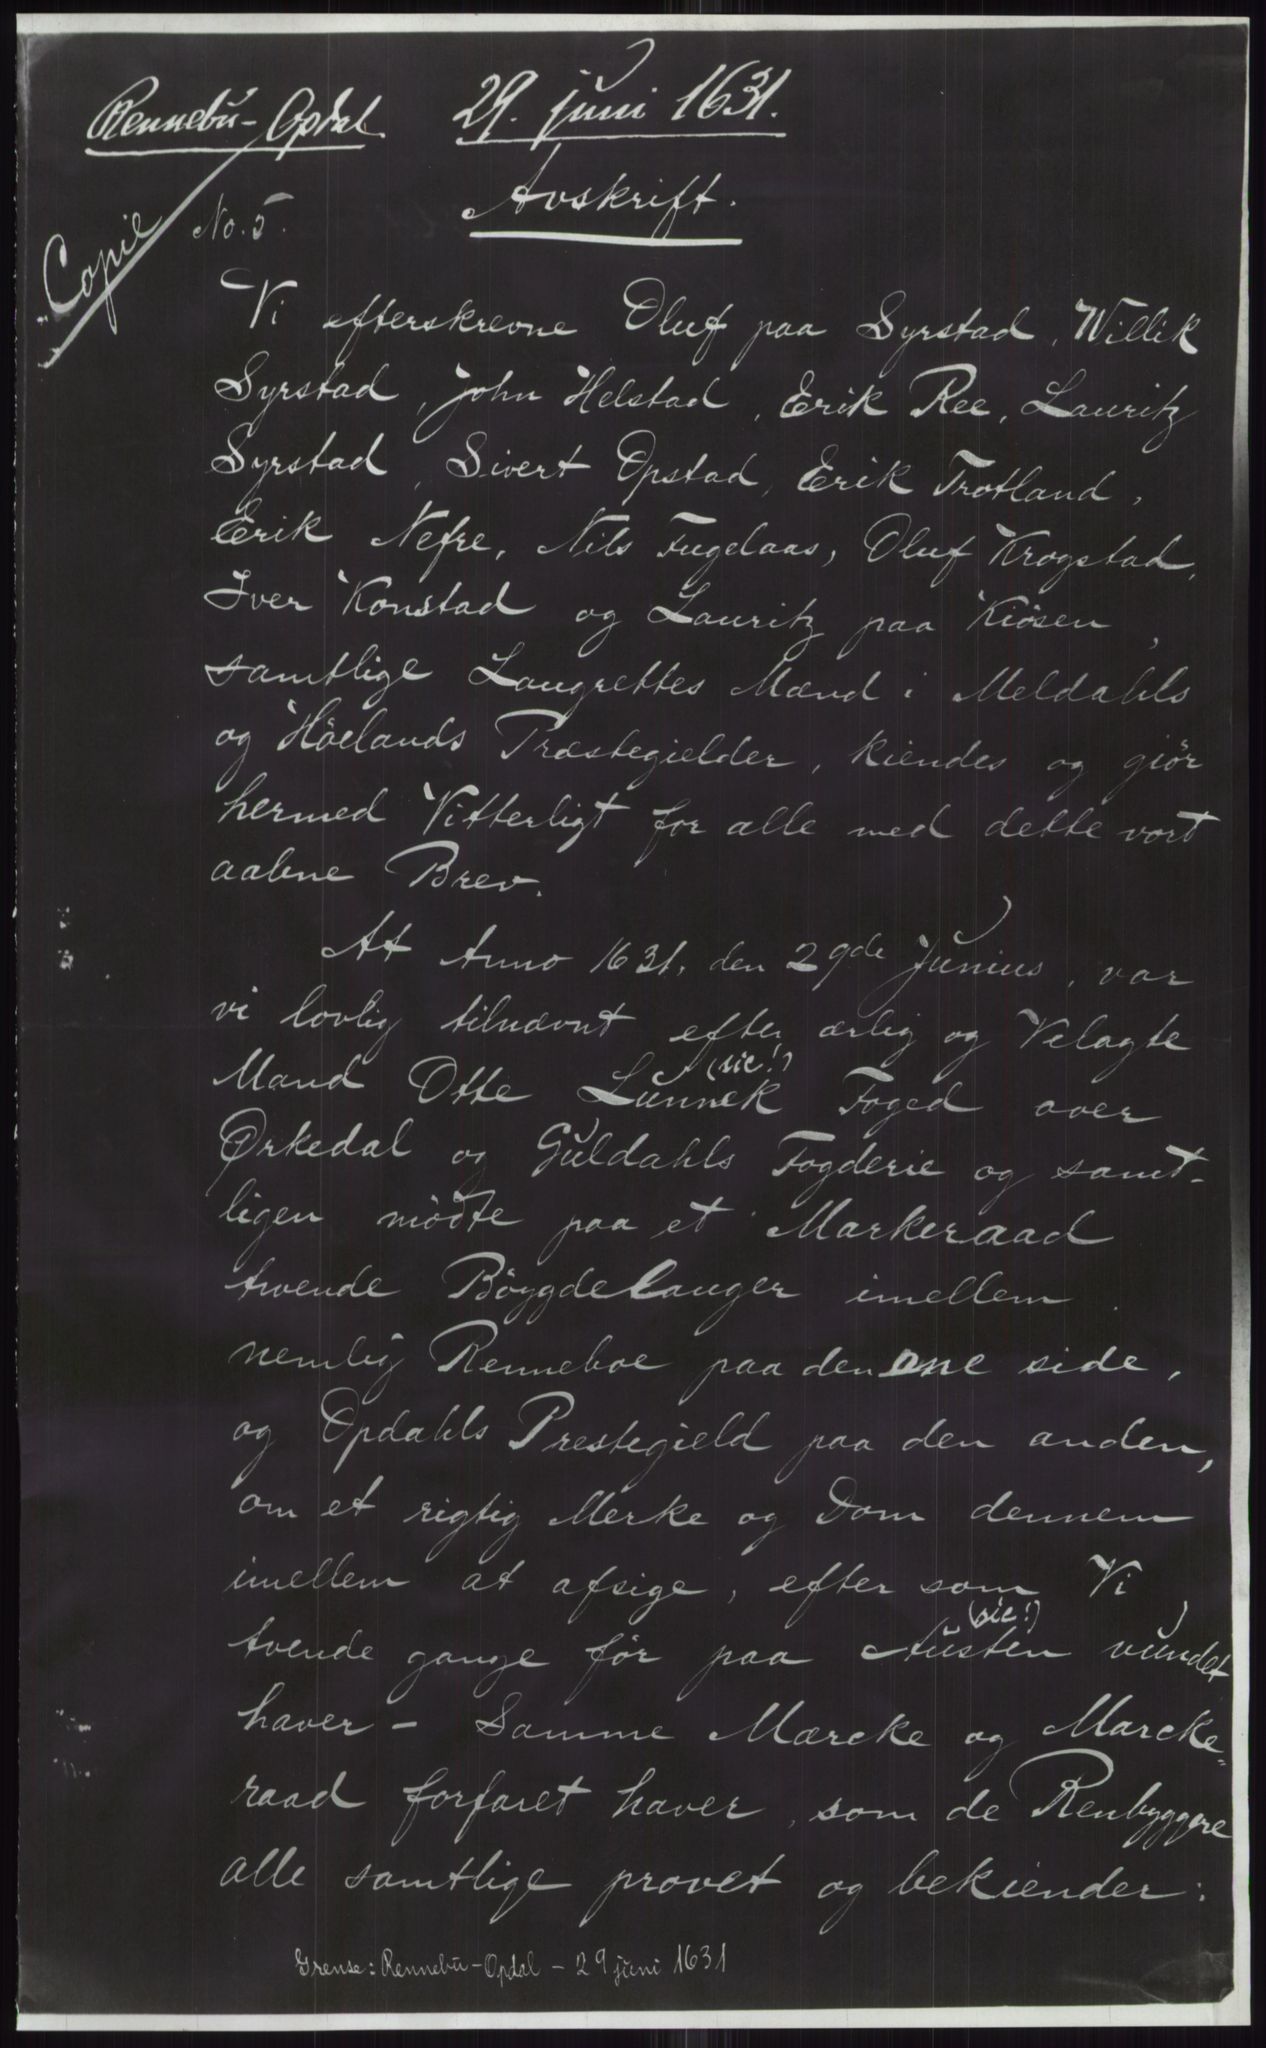 Rennebu - Opdal 29. juni 1631.
Avskrift.
"Copie
No. 5.
Vi efterskrevne Oluf paa Syrstad, Willik
Syrstad, John Helstad, Erik Ree, Lauritz
Syrstad, Sivert Opstad, Erik Trotland,
Erik Nefre, Nils Fugelaas, Oluf Krogstad,
Iver Konstad og Lauritz paa Kiösen,
samtlige Laugrettes Mænd i Meldahls
og Höelands Præstegielder, kiendes og giör
hermed Vitterligt for alle med dette vort
aabne Brev.
At Anno 1631. den 29de Junius, var
vi lovlig tilnævnt efter ærlig og Velagte
Mand Otte Lünnek (sic!) Foged over
Ørkedal og Guldahls Fogderie og samt-
ligen mödte paa et Markeraad
tvende Böygdelauger imellem
nemlig Renneboe paa den ene side,
og Opdahls Prestegield paa den anden,
om et rigtig Merke og Dom dennem
imellem at afsige, efter som Vi
tvende gange för paa Austen (sic!) vundet
haver - Samme Mærcke og Marcke=
raad forfaret haver, som de Renbyggere
alle samtlige provet og bekiender:
Grense: Rennebu - Opdal - 29 juni 1631